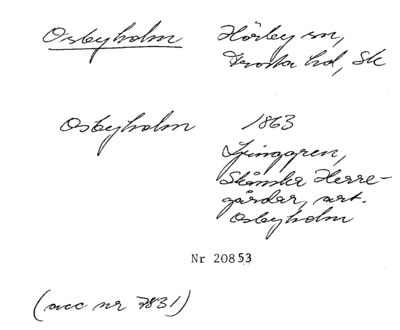 Osbyholm Hörby sn,
Frosta hd, Sk
Osbyholm 1863
Ljunggren,
Skånska Herre-
gårdar, art.
Osbyholm
Nr 20853
(acc nr 7831)